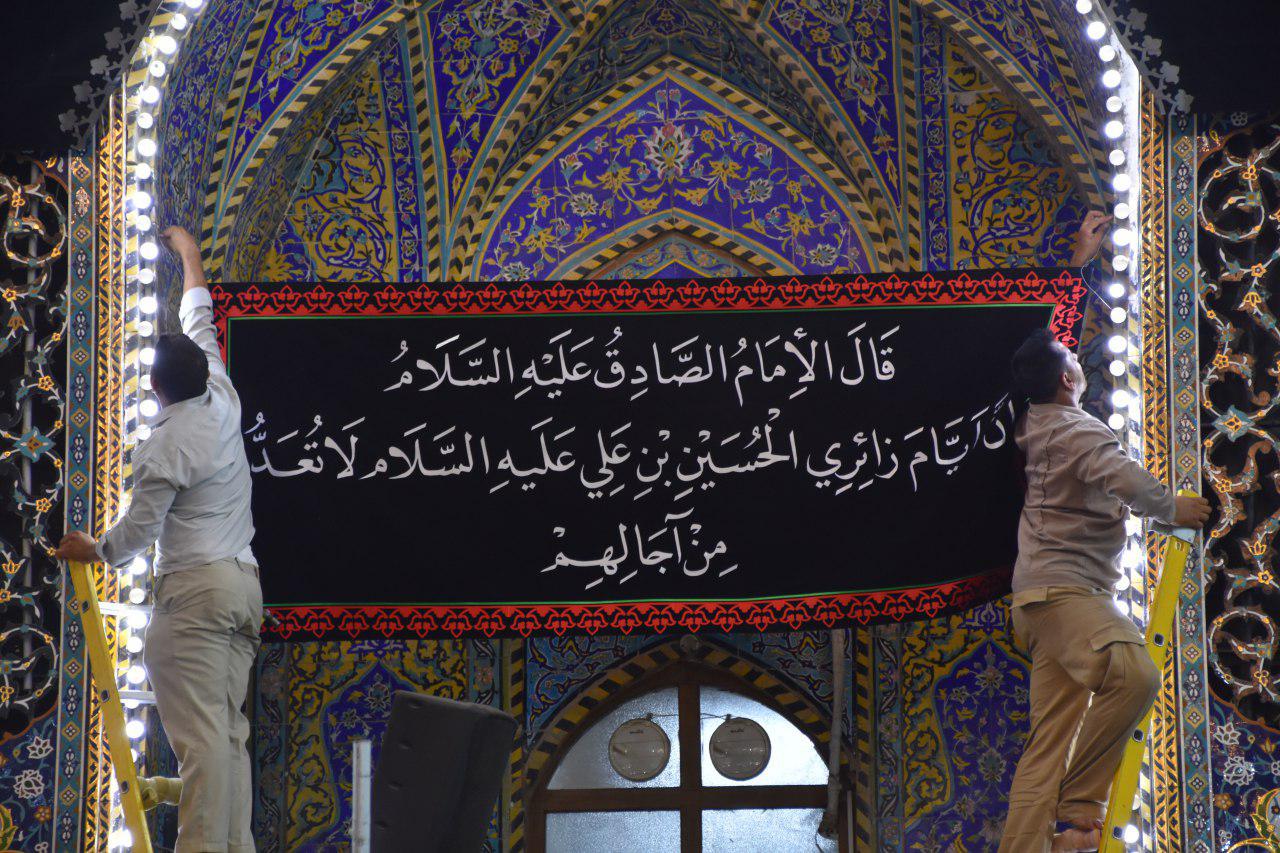 قَالَ الْإِمَامُ الصَّادِقُ عَلَيْهِ السَّلَامُ
انَّ اَيَّامَ زائِرِي الْحُسَيْنِ بْنِ عَلِيٍ عَلَيهِ السَّلَام لَا تُعَدُّ
مِنْ آجَالِهِمْ